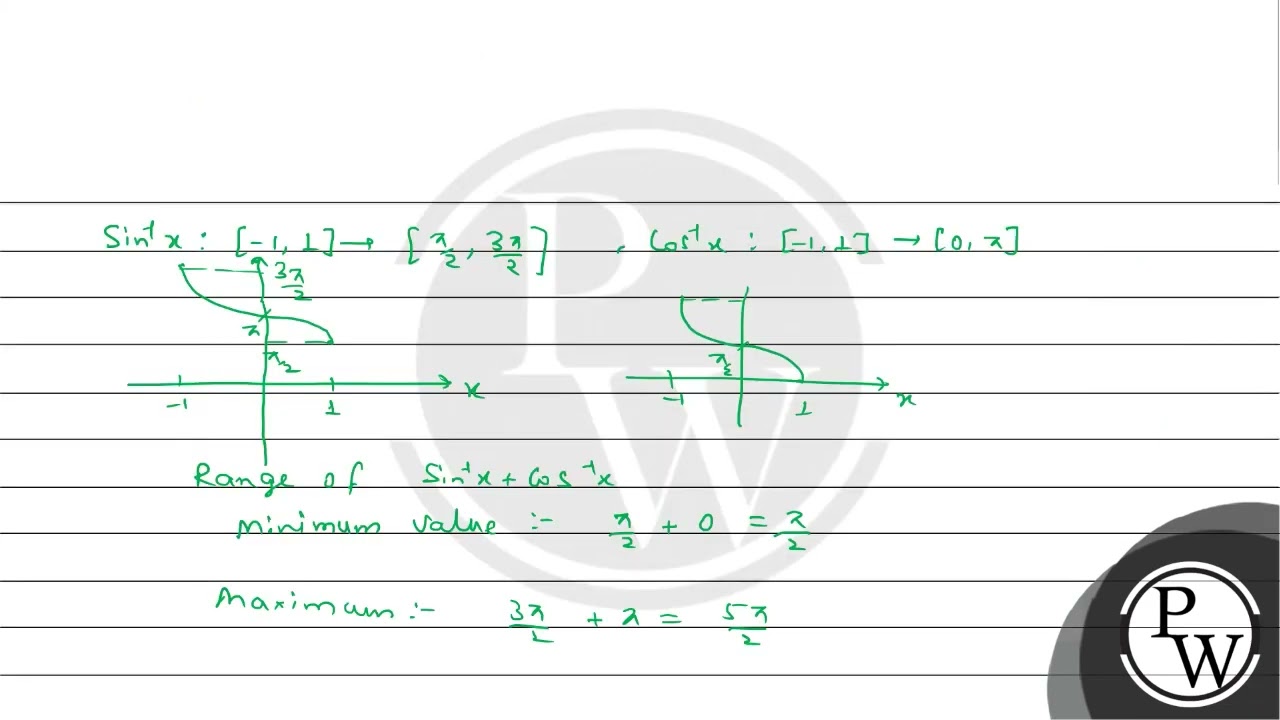 Sin⁻¹x : [-1, 1] → [π/2, 3π/2] , Cos⁻¹x : [-1, 1] → [0, π]
3π/2
π
π/2
-1 1 x
π/2
-1 1 x
Range of Sin⁻¹x + Cos⁻¹x
Minimum value :- π/2 + 0 = π/2
Maximum :- 3π/2 + π = 5π/2
P
W
P
W